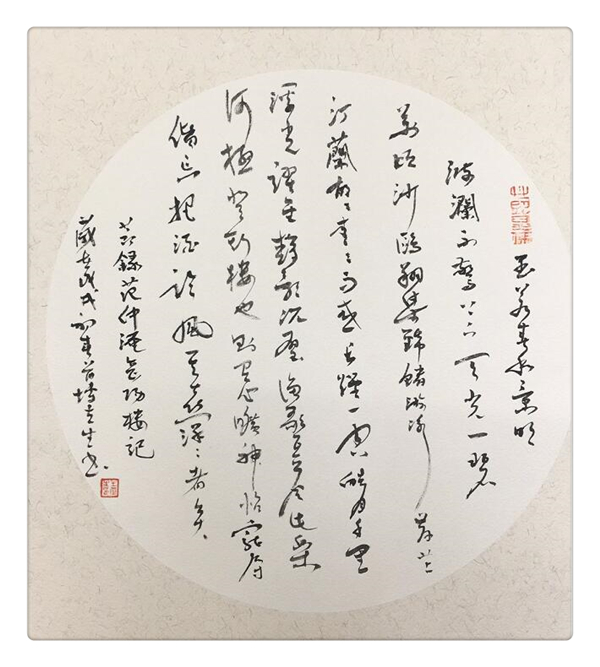 至若春和景明
波瀾不驚上下天光一碧
萬頃沙鷗翔集錦鱗游泳岸芷
汀蘭郁々青々而或長煙一空皓月千里
浮光躍金靜影沉璧漁歌互答此樂
何極登斯樓也則有心曠神怡寵辱
偕忘把酒臨風其喜洋々者矣
节錄范仲淹岳陽樓記
歲在戊戌初春書